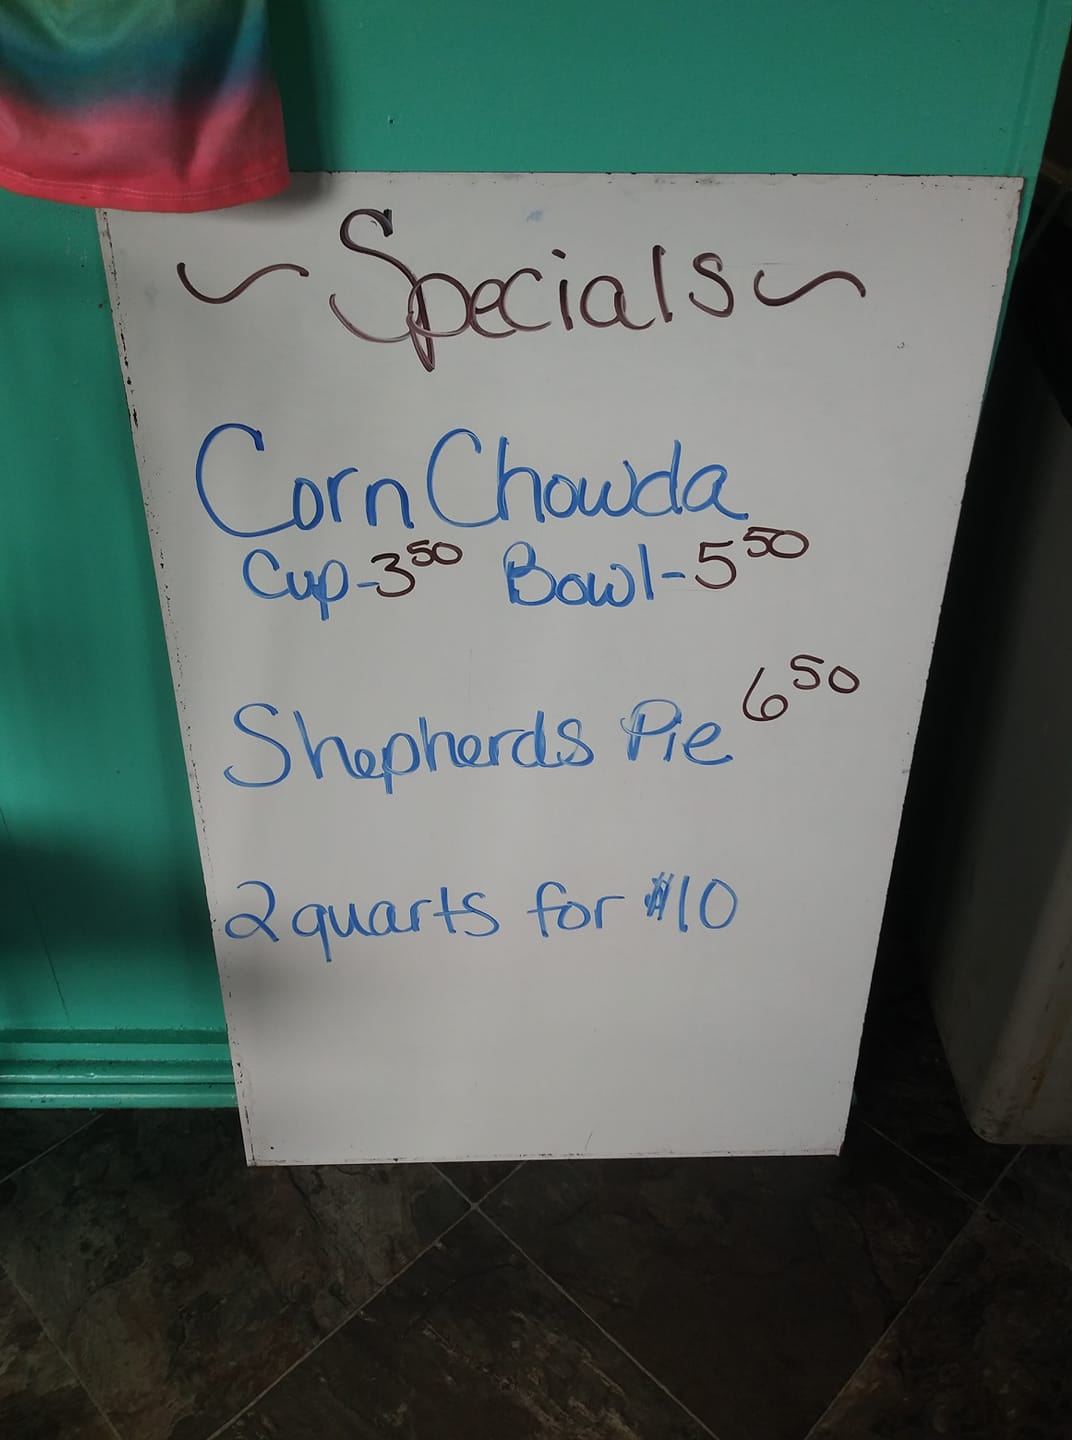 ~ Specials ~
Corn Chowda
Cup-3⁵⁰ Bowl-5⁵⁰
Shepherds Pie 6⁵⁰
2 quarts for $10